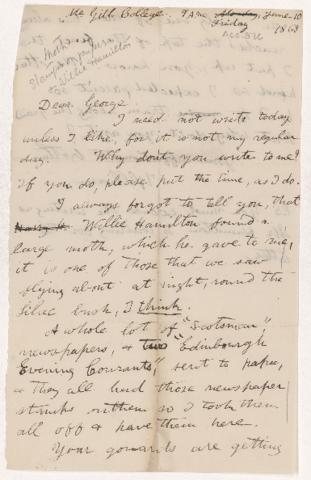 McGill College. 7 A.M. Monday, June 10
Friday
1868
Moth
Stamps on papers
Willie Hamilton
Dear George
I need not write today
unless I like, for it is not my regular
day. Why dont you write to me?
If you do, please put the time, as I do.
I always forgot to tell you that
Harry H. Willie Hamilton found a
large moth, which he gave to me,
it is one of those that we saw
flying about at night, round the
lilac bush, I think.
A whole lot of "Scotsman",
newspapers, & two "Edinburgh
Evening Courants", sent to papa,
& they all had those newspaper
stamps on them so I took them
all off & have them here.
Your gowands are getting